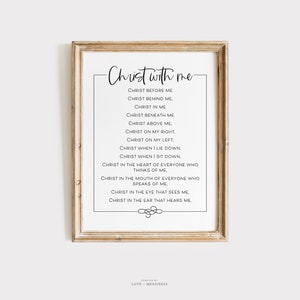 Christ with me
CHRIST BEFORE ME
CHRIST BEHIND ME,
CHRIST IN ME
CHRIST BENEATH ME
CHRIST ABOVE ME,
CHRIST ON MY RIGHT,
CHRIST ON MY LEFT,
CHRIST WHEN I LIE DOWN,
CHRIST WHEN I SIT DOWN,
CHRIST IN THE HEART OF EVERYONE WHO
THINKS OF ME,
CHRIST IN THE MOUTH OF EVERYONE WHO
SPEAKS OF ME,
CHRIST IN THE EYE THAT SEES ME,
CHRIST IN THE EAR THAT HEARS ME.